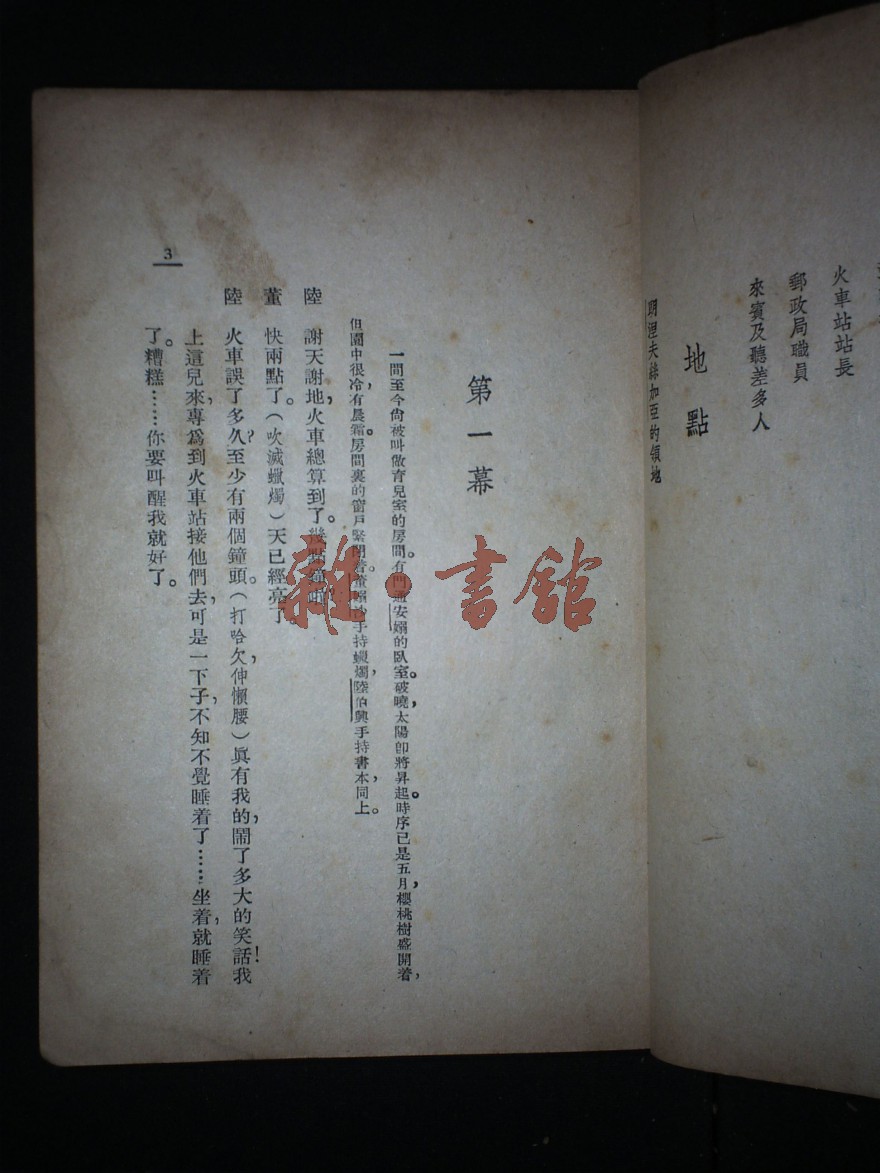 火車站站長
郵政局職員
來賓及聽差多人
地點
明涅夫絲加亞的領地
第一幕
一間至今尙被叫做育兒室的房間。有門通安嬭的臥室。破曉，太陽卽將昇起。時序已是五月，櫻桃樹盛開着，
但園中很冷，有晨霜。房間裏的窗戶緊閉着。手持蠟燭，陸伯興手持書本同上。
陸 謝天謝地，火車總算到了。幾點鐘啦？
董 快兩點了。（吹滅蠟燭）天已經亮了。
陸 火車誤了多久？至少有兩個鐘頭。（打哈欠，伸懶腰）眞有我的，鬧了多大的笑話！我
上這兒來，專爲到火車站接他們去，可是一下子，不知不覺睡着了……坐着，就睡着
了。糟糕……你要叫醒我就好了。
3
雜·書館